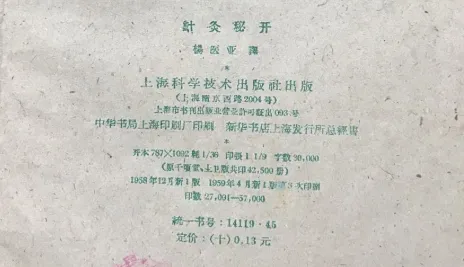 針灸秘开
楊医亚 譯
*
上海科学技术出版社出版
(上海南京西路2004号)
上海市书刊出版业营业許可証出093号
中华书局上海印刷厂印刷 新华书店上海发行所总經售
*
开本787×1092 耗1/36 印張1 1/9 字数30,000
(原千頃堂、上卫版共印42,500册)
1958年12月新1版 1959年4月新1版第3次印刷
印数27,001—57,000
統一书号:14119·45
定价:(十)0.13元